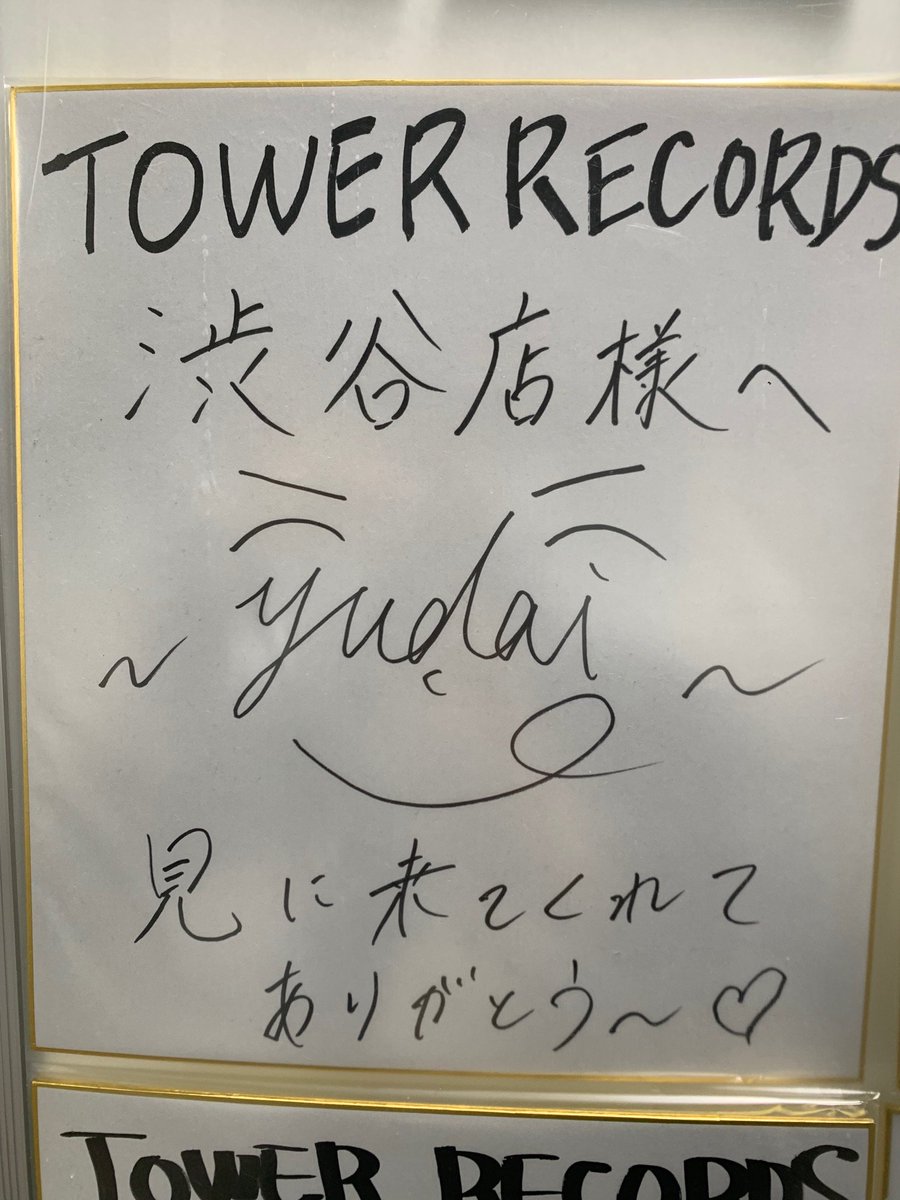 TOWER RECORDS
渋谷店様へ
~ yudai ~
見に来てくれて
ありがとう~♡
TOWER RECORDS